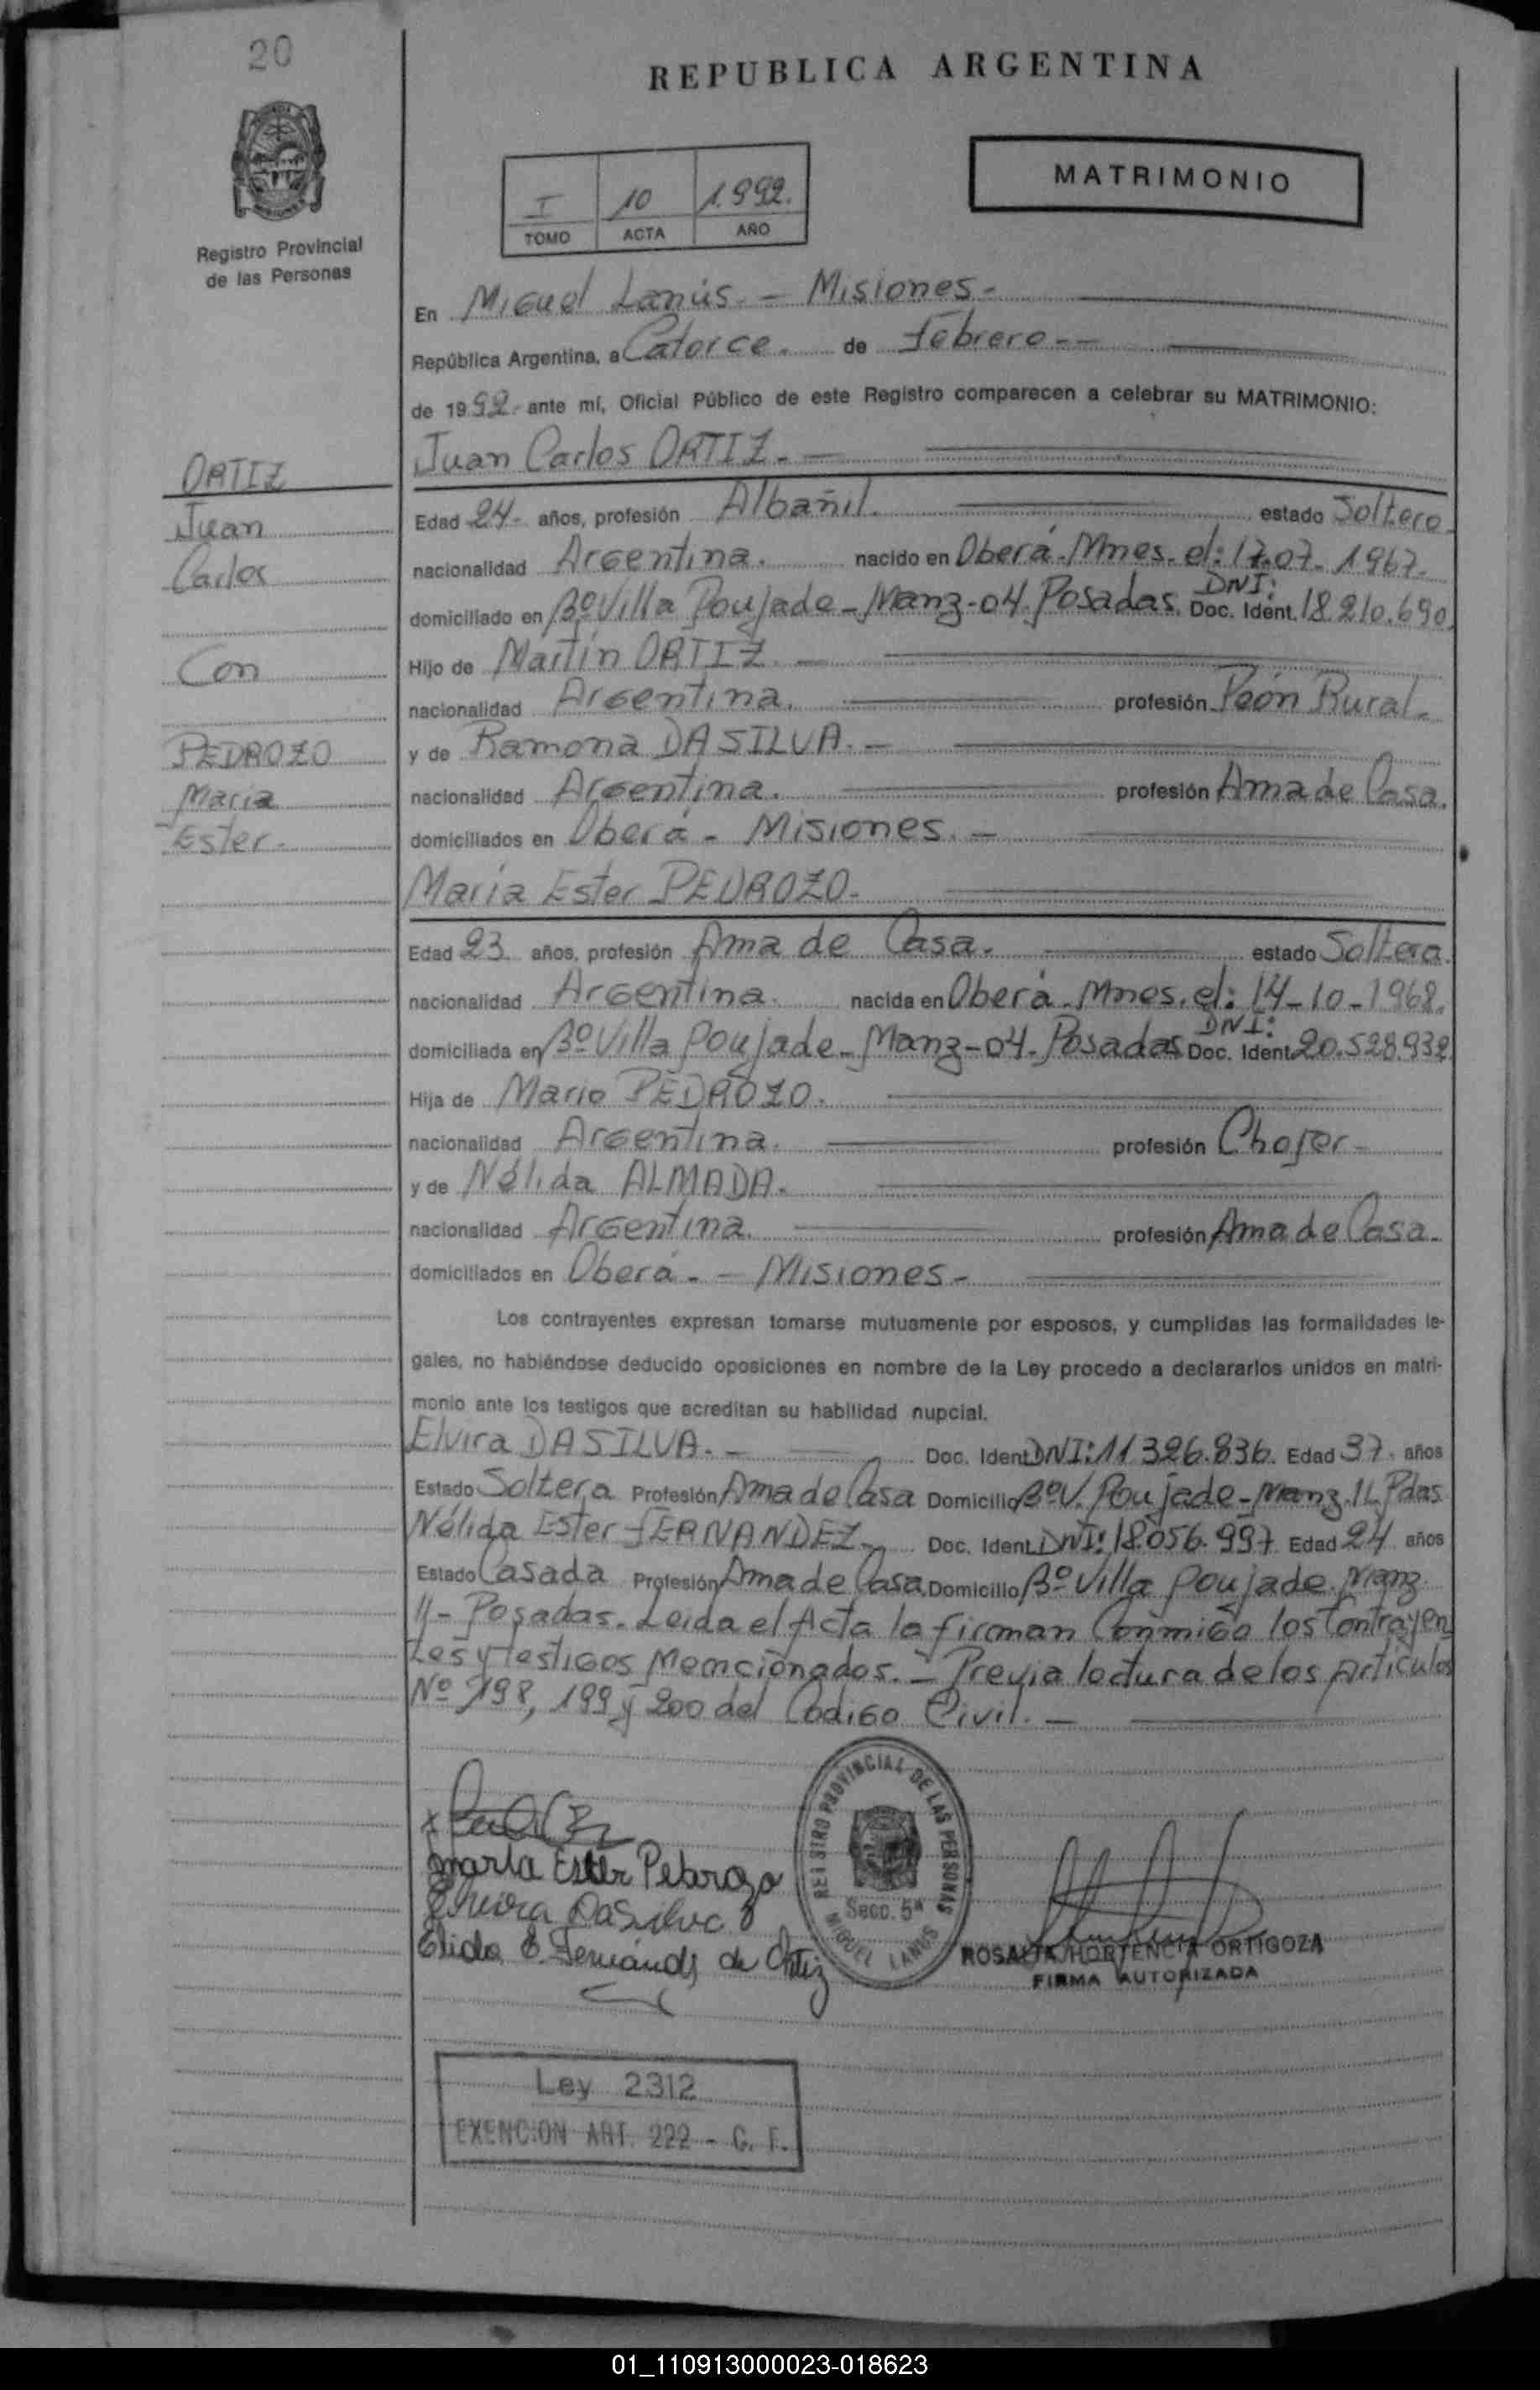 20
REPUBLICA ARGENTINA
MATRIMONIO
I 10 1.992.
TOMO ACTA AÑO
Registro Provincial
de las Personas
En Miguel Lanús. - Misiones -
República Argentina, a Catorce. de febrero --
de 1992. ante mí, Oficial Público de este Registro comparecen a celebrar su MATRIMONIO:
Juan Carlos ORTIZ. -
ORTIZ
Juan
Carlos
Con
PEDROZO
Maria
Ester -
Edad 24- años, profesión Albañil. estado Soltero.
nacionalidad Argentina. nacido en Oberá-Mnes. el: 17.07. 1967.
domiciliado en Bº Villa Poujade - Manz-04. Posadas. DNI: Doc. Ident. 18.210.690.
Hijo de Martín ORTIZ. -
nacionalidad Argentina. profesión Peón Rural -
y de Ramona DA SILVA. -
nacionalidad Argentina. profesión Ama de Casa.
domiciliados en Oberá - Misiones. -
María Ester PEDROZO -
Edad 23 años, profesión Ama de Casa. estado Soltera.
nacionalidad Argentina. nacida en Oberá - Mnes. el: 14-10-1968.
domiciliada en Bº Villa Poujade - Manz-04. Posadas DNI: Doc. Ident. 20.528.932.
Hija de Mario PEDROZO.
nacionalidad Argentina. profesión Chofer -
y de Nélida ALMADA.
nacionalidad Argentina. profesión Ama de Casa.
domiciliados en Oberá. - Misiones -
Los contrayentes expresan tomarse mutuamente por esposos, y cumplidas las formalidades le-
gales, no habiéndose deducido oposiciones en nombre de la Ley procedo a declararlos unidos en matri-
monio ante los testigos que acreditan su habilidad nupcial.
Elvira DASILVA. - Doc. Ident. DNI: 11 326.836. Edad 37. años
Estado Soltera Profesión Ama de Casa Domicilio Bº V. Poujade - Manz. 11. Pdas
Nélida Ester FERNANDEZ - Doc. Ident. DNI: 18.056.997 Edad 24 años
Estado Casada Profesión Ama de Casa. Domicilio Bº Villa Poujade. Manz.
11 - Posadas. Leida el Acta la firman Conmigo los Contrayen
tes y testigos Memcionados. - Previa lectura de los Articulos
Nº 198, 199 y 200 del Codigo Civil. -
Maria Ester Pedrozo
Elvira DaSilva
Elida E. Fernández de Ortiz
REGISTRO PROVINCIAL DE LAS PERSONAS
Secc. 5ª
MIGUEL LANUS
ROSALIA HORTENCIA ORTIGOZA
FIRMA AUTORIZADA
Ley 2312
EXENCION ART. 222 - C. F.
01_110913000023-018623